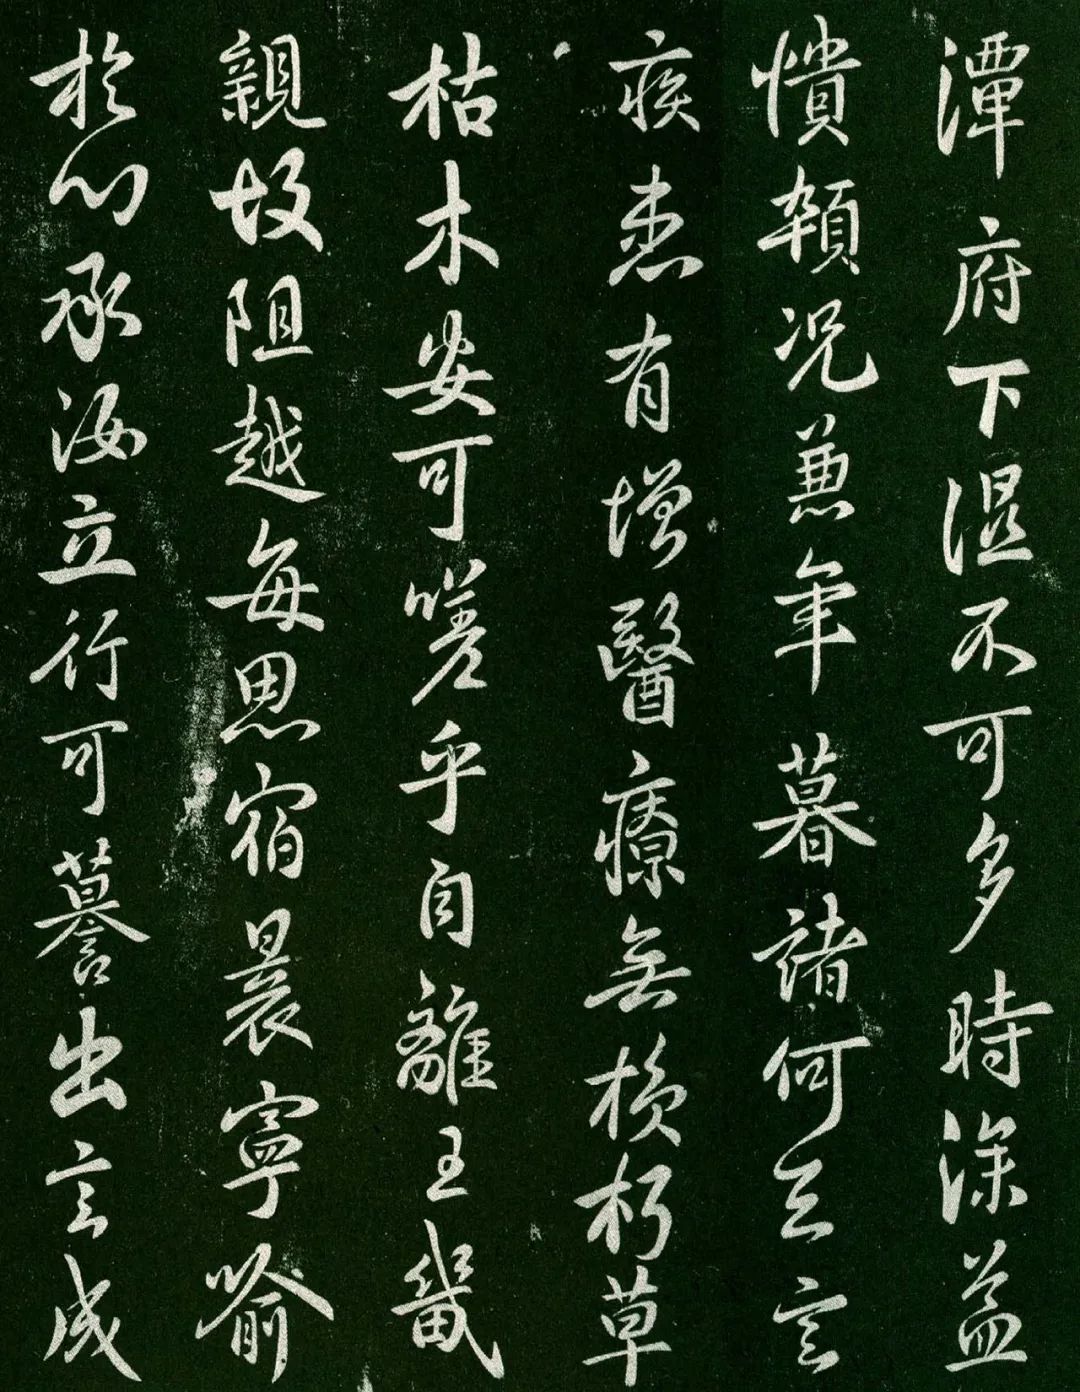 潭府下濕不可多時深益
憒頓況兼年暮諸何足言
疾患有增醫療無損朽草
枯木安可嗟乎自離王畿
親故阻越每思宿晨寧喻
於心承汝立行可譽出言成